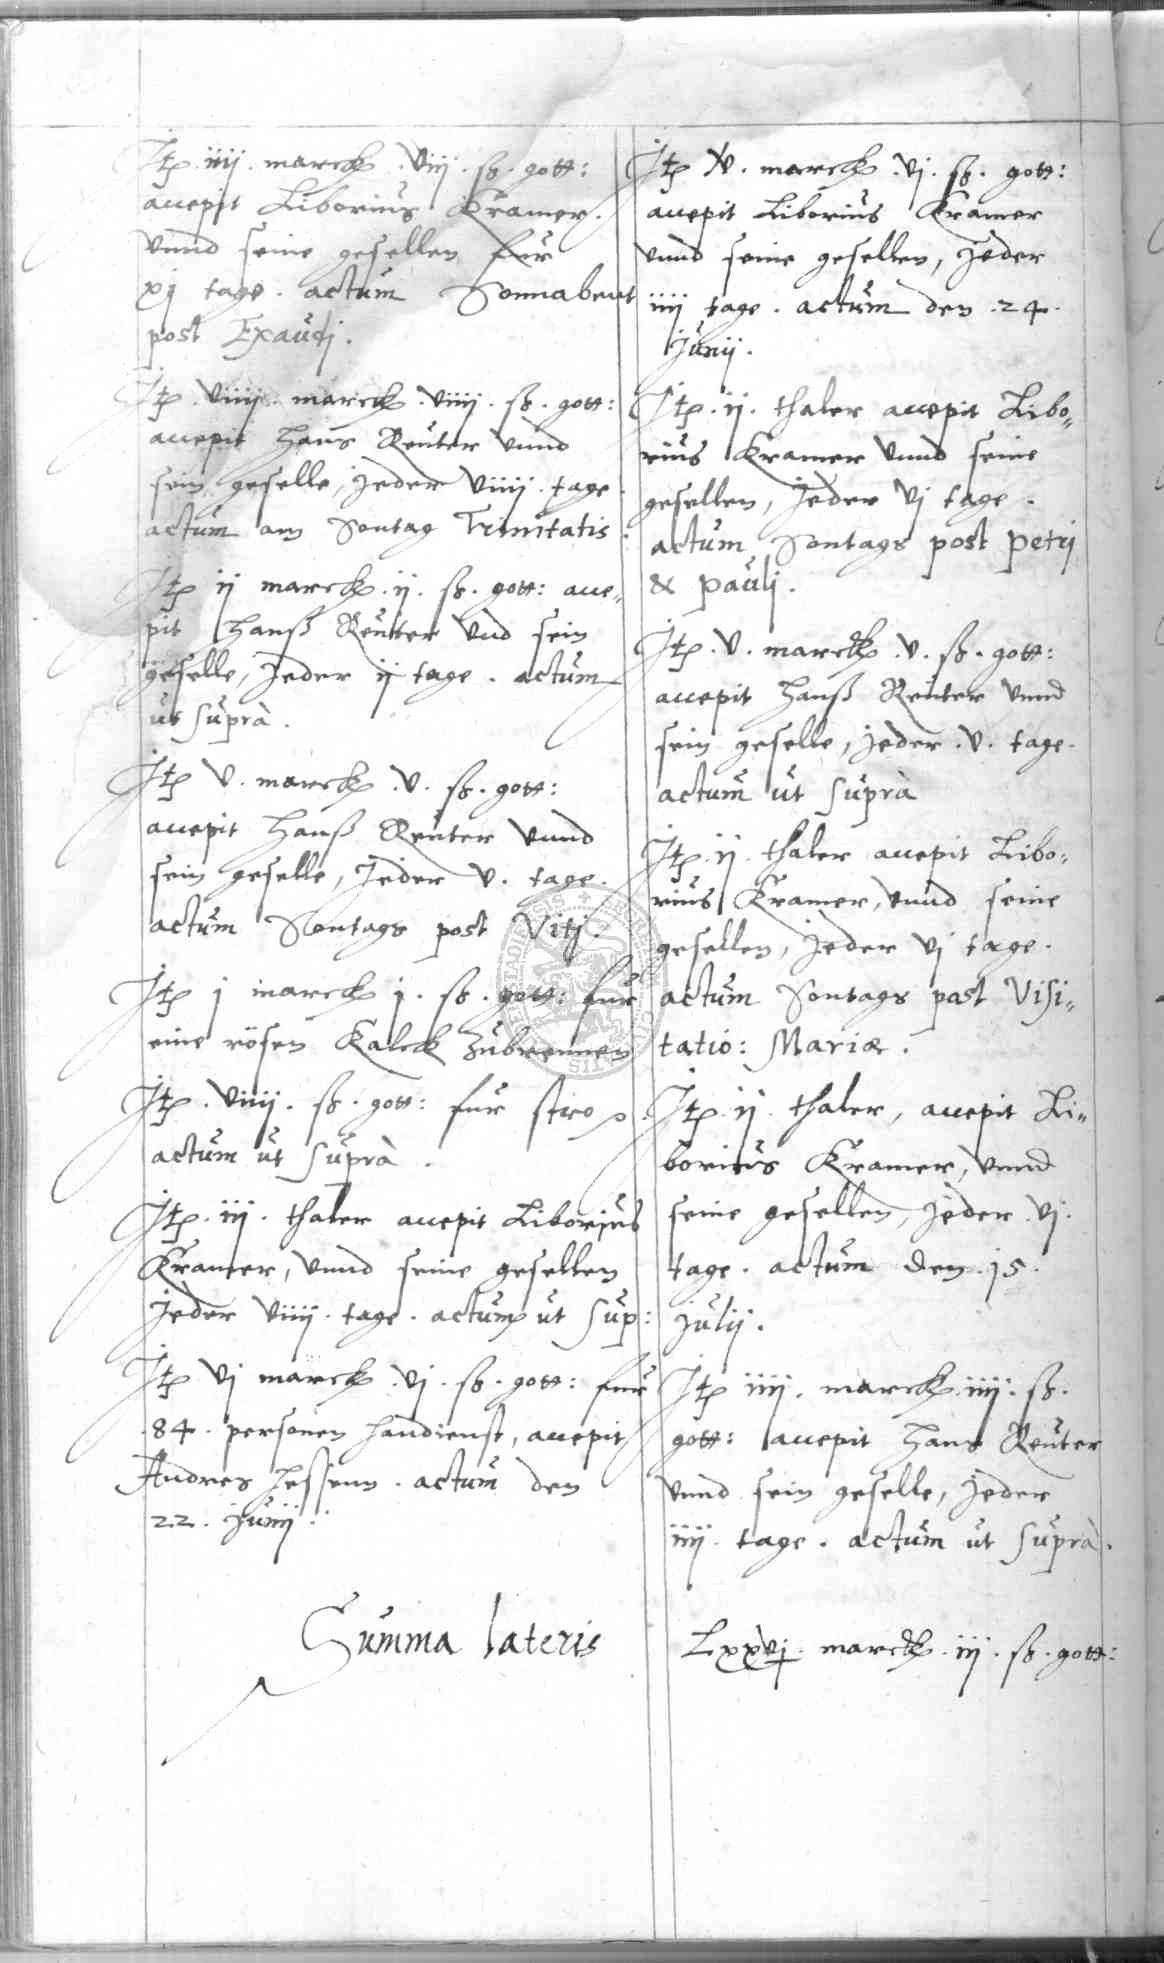 Itp. iiij. marck. viij. sß. gott:
accepit Liborius Kramer.
vnnd seine gesellen fur
xj tage. actum Sonnabent
post Exaudj.
Itp. viiij. marck. viiij. sß. gott:
accepit Hans Reuter vnnd
sein geselle, Jeder viiij. tage.
actum am Sontag Trinitatis.
Itp ij marck. ij. sß. gott: acce„
pit Hanß Reuter vnd sein
geselle, Jeder ij tage. actum
ut suprà.
Itp v. marck. v. sß. gott:
accepit Hanß Reuter vnnd
sein geselle, Jeder v. tage.
actum Sontags post Vitj.
Itp j marck j. sß. gott: fur
eine rösen Kalck zubrennen
Itp. viiij. sß. gott: fur stro
actum ut suprà.
Itp. iij. thaler accepit Liborius
Kramer, vnnd seine gesellen
Jeder viiij. tage. actum ut sup:
Itp vj marck. vj. sß. gott: fur
.84. personen handienst, accepit
Andres Hessenn. actum den
22. Junij.
Summa lateris
Itp v. marck. vj. sß. gott:
accepit Liborius Kramer
vnnd seine gesellen, Jeder
iiij tage. actum den .24.
Junij.
Itp. ij. thaler accepit Libo„
rius Kramer vnnd seine
gesellen, Jeder vj tage.
actum Sontags post Petrj
& Paulj.
Itp. v. marck. v. sß. gott:
accepit Hanß Reuter vnnd
sein geselle, Jeder. v. tage.
actum ut suprà
Itp. ij. thaler accepit Libo„
rius Kramer, vnnd seine
gesellen, Jeder vj tage.
actum Sontags post Visi„
tatio: Mariæ.
Itp. ij. thaler, accepit Li„
borius Kramer, vnnd
seine gesellen, Jeder. vj.
tage. actum den .15.
Julij.
Itp iiij. marck. iiij. sß.
gott: accepit Hans Reuter
vnnd sein geselle, Jeder
iiij. tage. actum ut suprà.
Lxxvj. marck. iij. sß. gott: